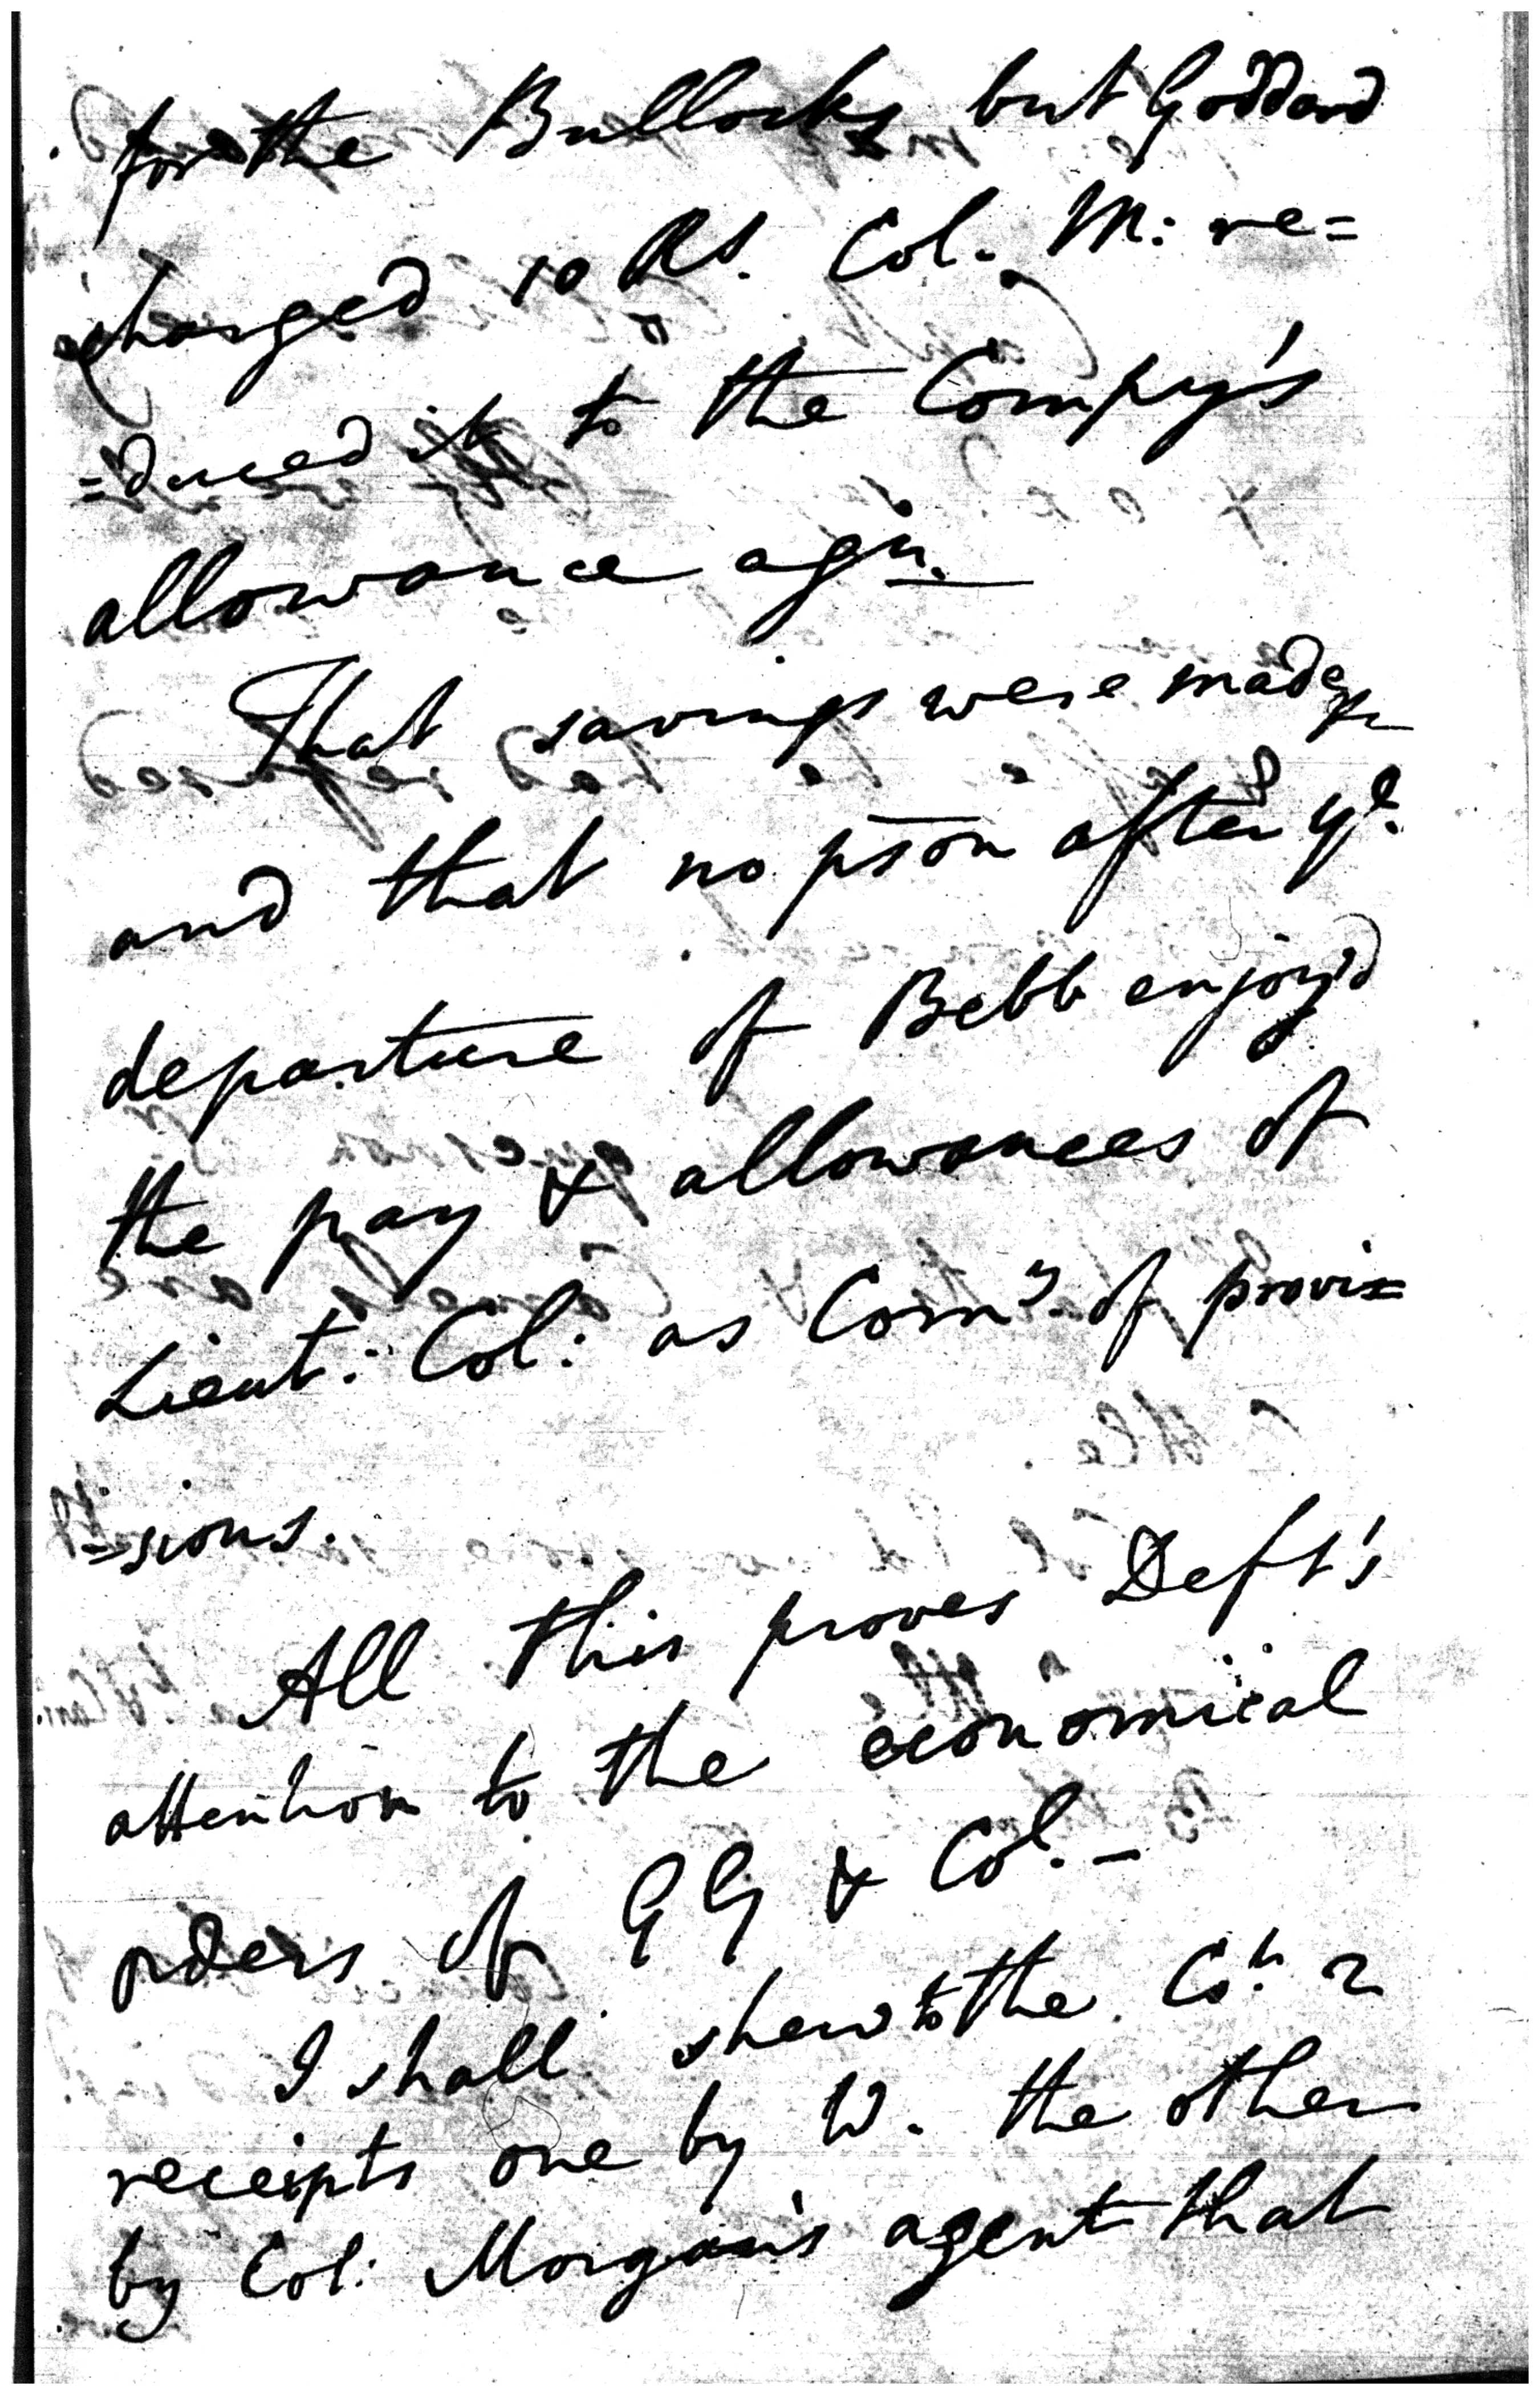 for the Bullocks but Goddard
charged 10 Rs. Col. M: re=
=duced it to the Compy's
allowance agn.
That savings were made
and that no pson after ye.
departure of Bebb enjoy'd
the pay & allowances of
Lieut: Col: as Comy. of provi=
=sions.
All this proves Deft's
attention to the economical
orders of GG & Col. –
I shall shew to the Ct. 2
receipts one by W. the other
by Col: Morgan's agent that